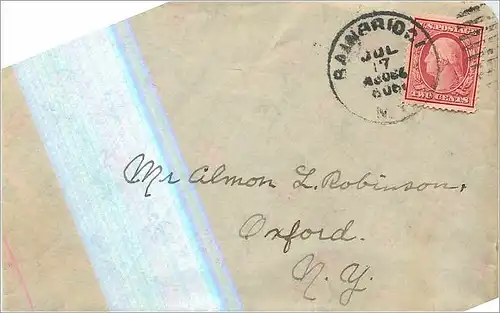 BAINBRIDG
JUL
17
N.Y.
U.S. POSTAGE
TWO CENTS
Mr Almon L. Robinson.
Oxford.
N.Y.